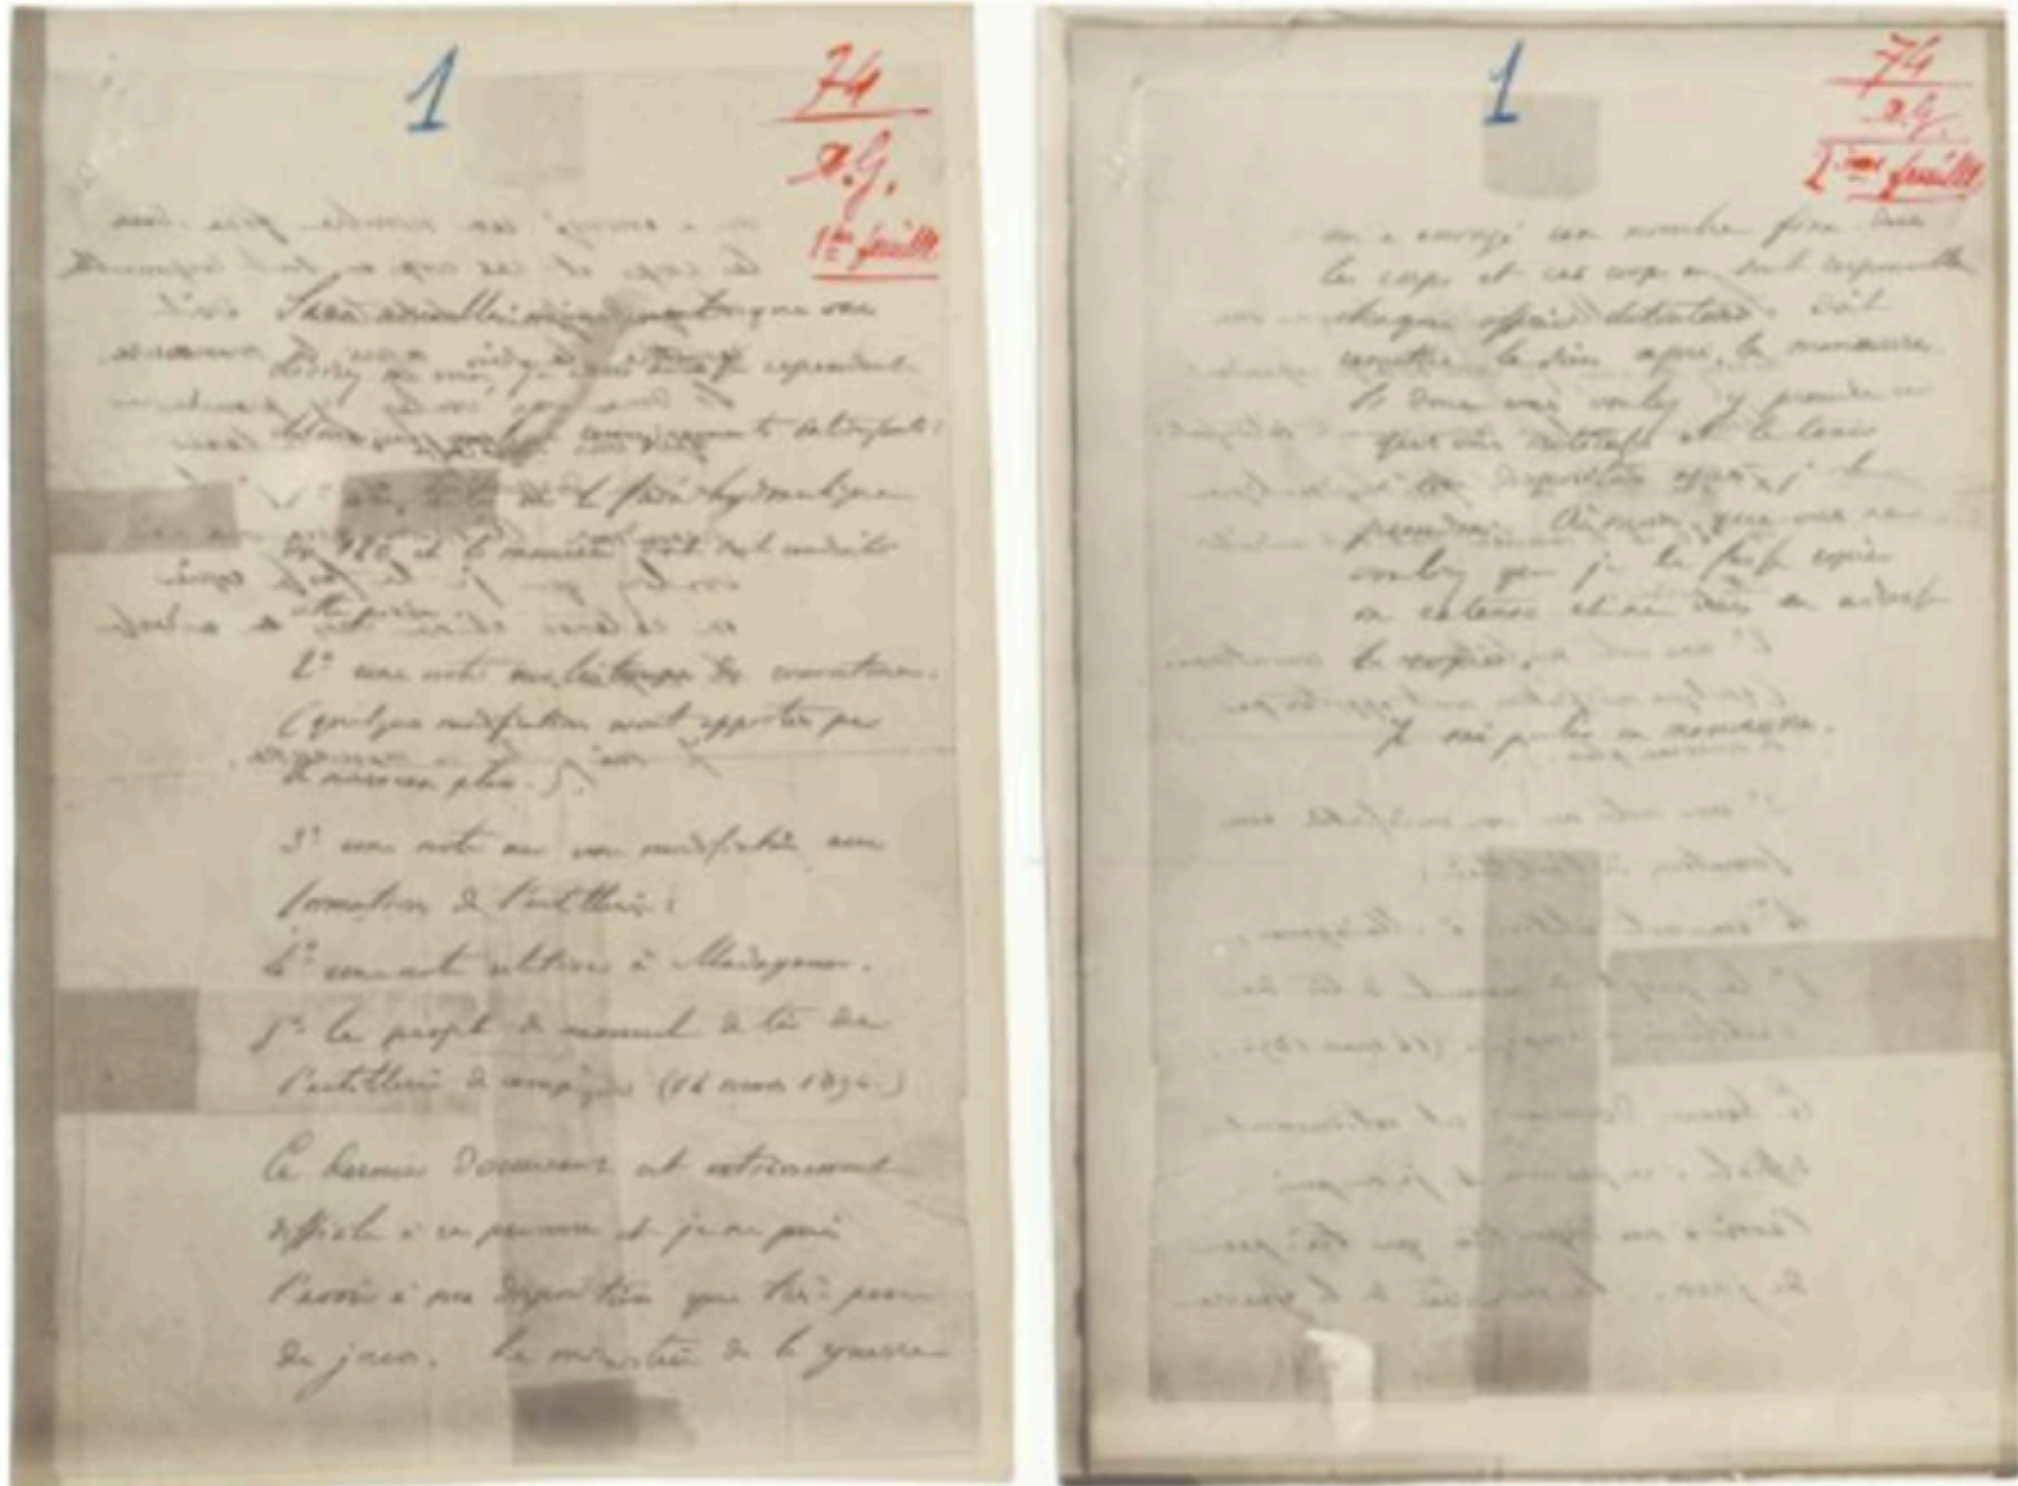 1
74
a.G.
1ère feuille
Sans nouvelles m'indiquant que vous
désirez me voir, je vous adresse cependant
intéressants :
sur le frein hydraulique
du 120 et la manière dont s'est conduite
cette pièce.
2° une note sur les troupes de couverture.
(quelques modifications seront apportées par
le nouveau plan.)
3° une note sur une modification aux
formations de l'artillerie :
4° une note relative à Madagascar.
5° le projet de manuel de tir de
l'artillerie de campagne (14 mars 1894.)
Ce dernier document est extrêmement
difficile à se procurer et je ne puis
l'avoir à ma disposition que très peu
de jours. Le ministère de la guerre
1
74
a.G.
2ème feuille
en a envoyé un nombre fixe dans
les corps et ces corps en sont responsables
chaque officier détenteur doit
remettre le sien après les manoeuvres.
Si donc vous voulez y prendre ce
qui vous intéresse et le tenir
à ma disposition après, je le
prendrai. A moins que vous ne
vouliez que je le fasse copier
in extenso et ne vous en adresse
la copie.
Je vais partir en manoeuvres.